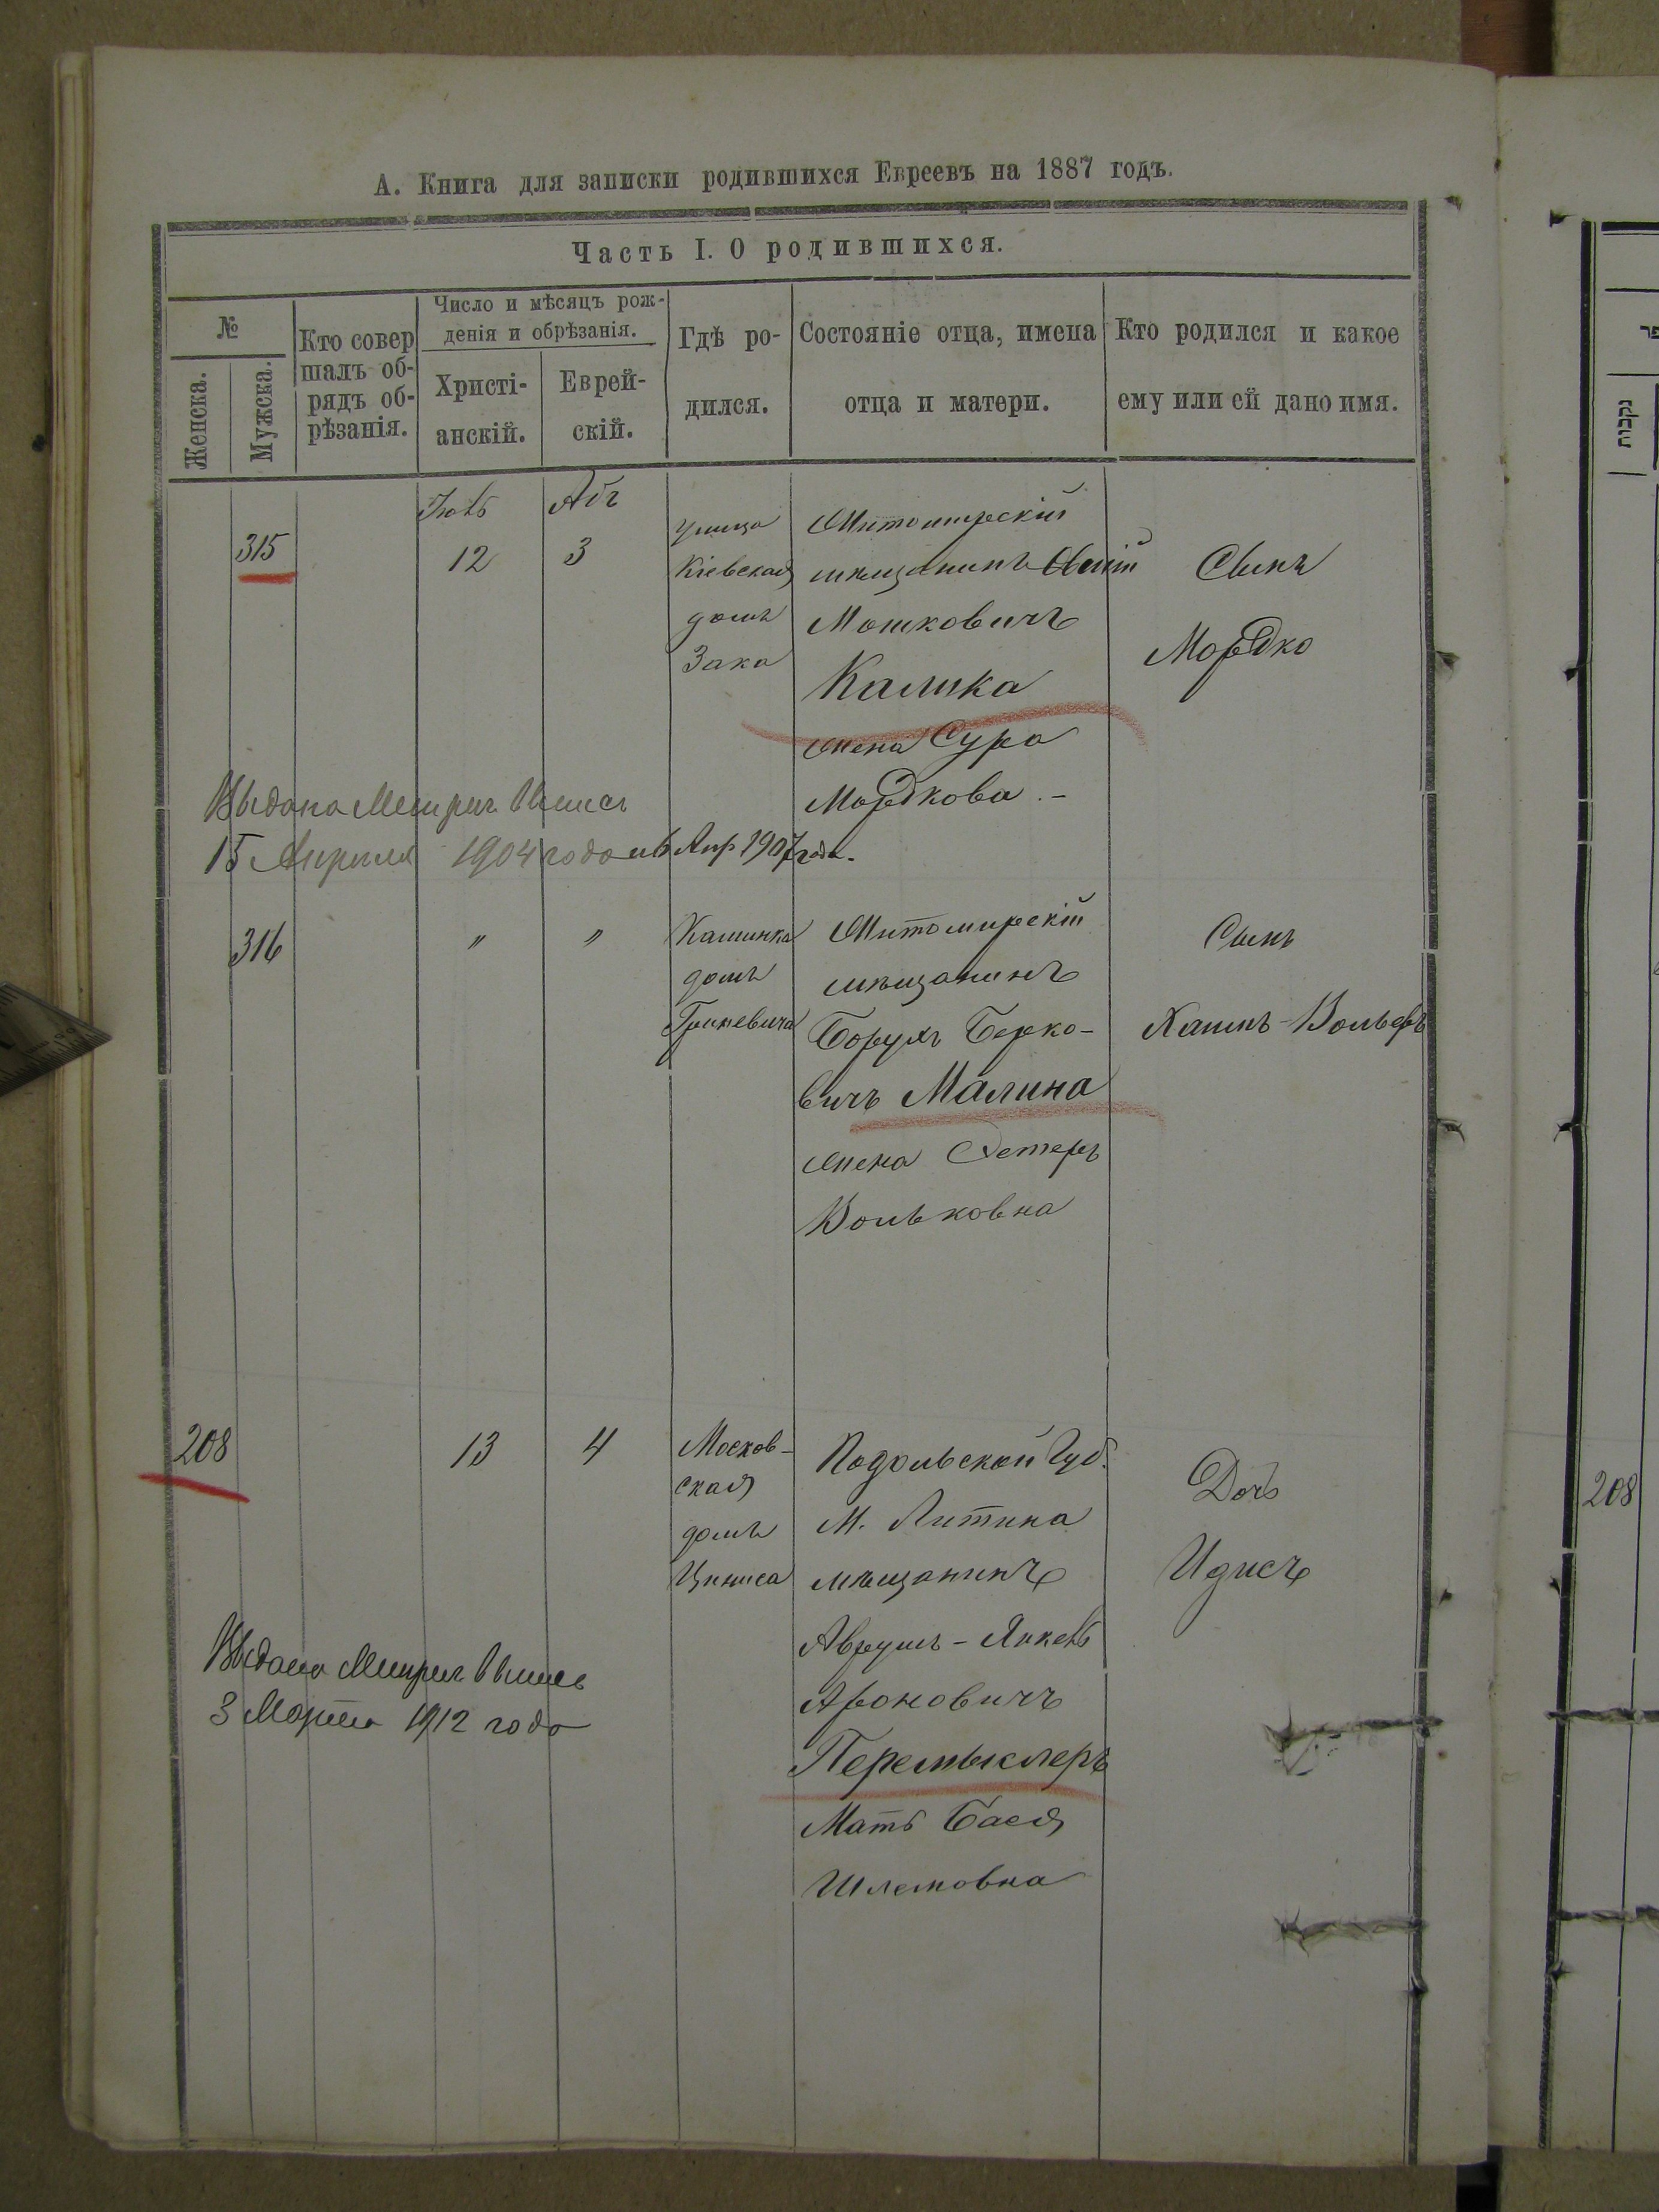 А. Книга для записки родившихся Евреевъ на 1887 годъ.
Часть I. О родившихся.
№
Женска.
Мужска.
Кто совер
шалъ об-
рядъ об-
рѣзанія.
Число и мѣсяцъ рож-
денія и обрѣзанія.
Христі-
анскій.
Еврей-
скій.
Гдѣ ро-
дился.
Состояніе отца, имена
отца и матери.
Кто родился и какое
ему или ей дано имя.
315
Іюль
12
Абъ
3
улица
Кіевская
домъ
Зака
Житомирскій
мѣщанинъ
Мошковичъ
Калика
жена Сура
Мордкова. -
Сынъ
Мордко
Выдана Метрич Выпись
15 Апреля 1904 года и 6 Апр 1907 года.
316
"
"
Каминка
домъ
Гриневича
Житомирскій
мѣщанинъ
Борухъ Берко-
вичъ Малина
жена Эстеръ
Вольковна
Сынъ
Хаимъ-Вольфъ
208
13
4
Москов-
ская
домъ
Подольской Губ.
М. Литина
мѣщанинъ
Аврумъ-Янкель
Ароновичъ
Перемыслеръ
Мать Бася
Шлемовна
Дочь
Идись
Выдана Метрич Выпись
3 Марта 1912 года
נקבות
208